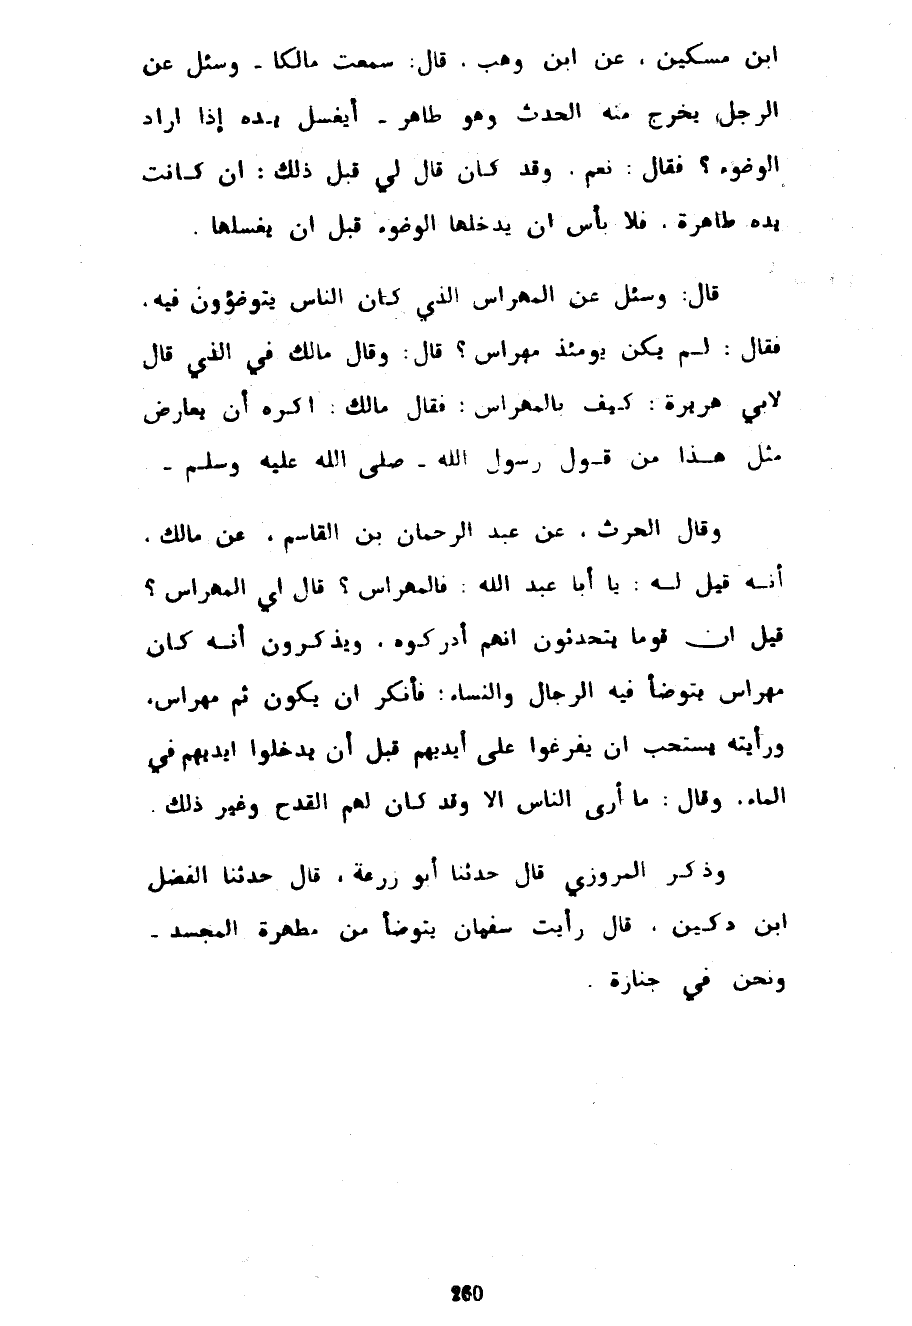 ابن مسكين ، عن ابن وهب ، قال: سمعت مالكا - وسئل عن
الرجل يخرج منه الحدث وهو طاهر - أيغسل يـده إذا اراد
الوضوء ؟ فقال : نعم . وقد كان قال لي قبل ذلك : ان كـانت
يده طاهرة ، فلا بأس ان يدخلها الوضوء قبل ان يغسلها .
قال: وسئل عن المهراس الذي كان الناس يتوضؤون فيه،
فقال : لـم يكن يومئذ مهراس ؟ قال: وقال مالك في الذي قال
لابي هريرة : كيف بالمهراس : فقال مالك : اكره أن يعارض
مثل هـذا من قـول رسول الله - صلى الله عليه وسلـم -
وقال الحرث ، عن عبد الرحمان بن القاسم ، عن مالك ،
أنـه قيل لـه : يا أبا عبد الله : فالمهراس ؟ قال اي المهراس ؟
قيل ان قوما يتحدثون انهم أدركوه ، ويذكرون أنـه كان
مهراس يتوضأ فيه الرجال والنساء : فأنكر ان يكون ثم مهراس،
ورأيته يستحب ان يفرغوا على أيديهم قبل أن يدخلوا ايديهم في
الماء، وقال : ما أرى الناس الا وقد كان لهم القدح وغير ذلك .
وذكر المروزي قال حدثنا أبو زرعة ، قال حدثنا الفضل
ابن دكين ، قال رأيت سفيان يتوضأ من مطهرة المجسد -
ونحن في جنازة .
260